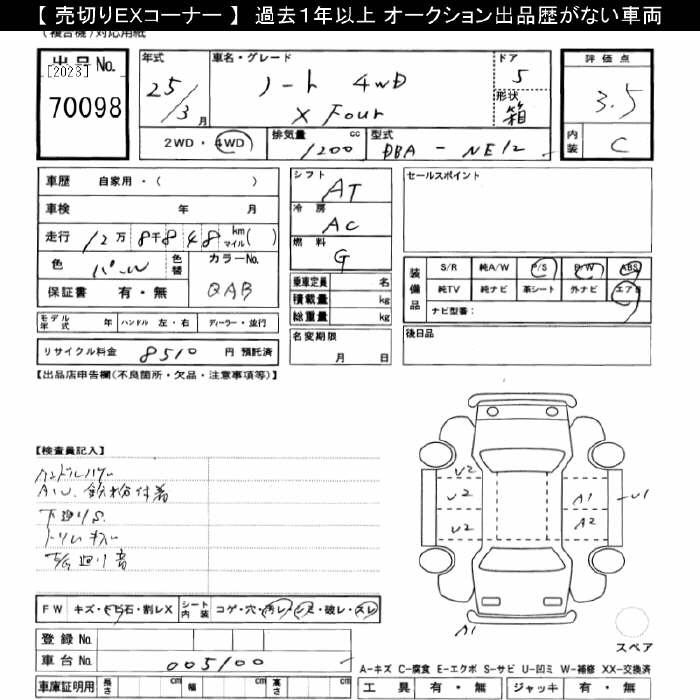 【 売切りEXコーナー 】 過去1年以上 オークション出品歴がない車両
(複合機)対応用紙
出品No.
[2023]
70098
年式
25/3月
車名・グレード
ノート 4WD
X Four
ドア
5
形状
箱
評価点
3.5
内装
C
2WD・4WD
排気量
1200
cc
型式
DBA - NE12
車歴 自家用・( )
車検 年 月
走行 12万8千848 km マイル( )
色 パール 色替
カラーNo.
QAB
保証書 有・無
シフト
AT
冷房
AC
燃料
G
乗車定員 名
積載量 kg
総重量 kg
セールスポイント
装備品
S/R 純A/W P/S P/W ABS
純TV 純ナビ 革シート 外ナビ エアB
ナビ型番：
モデル年式 年 ハンドル 左・右 ディーラー・並行
リサイクル料金 8510 円 預託済
名変期限
月 日
後日品
【出品店申告欄(不良箇所・欠品・注意事項等)】
【検査員記入】
A.W. 鉄粉付着
下廻りS
トリムキズ
下廻り音
U2
U2
U2
A1
A2
U1
A1
FW キズ・トビ石・割レX
シート内装 コゲ・穴・汚レ・シミ・破レ・スレ
登録No.
車台No. 005100
スペア
A-キズ C-腐食 E-エクボ S-サビ U-凹ミ W-補修 XX-交換済
車庫証明用 長さ cm 幅 cm 高さ cm
工具 有・無 ジャッキ 有・無